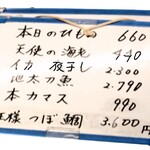 本日のひもの 660
天使の海老 440
イカ 夜干し 2.300
地太刀魚 2.790
本カマス 990
王様 つぼ鯛 3.600円